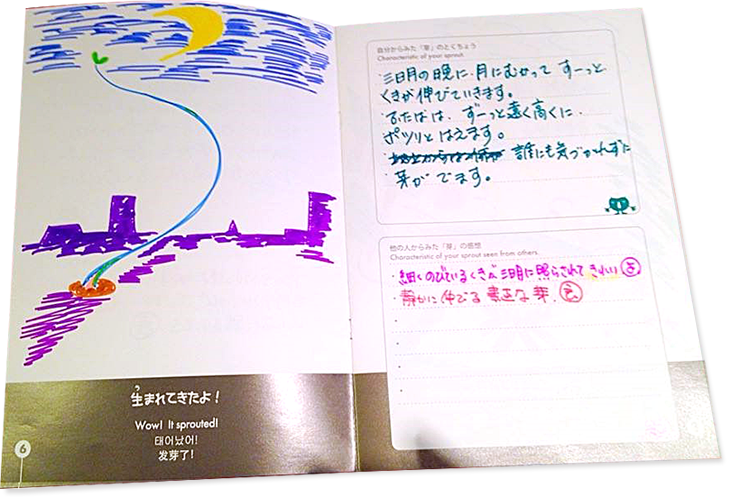 生まれてきたよ！
Wow! It sprouted!
태어났어!
发芽了!
6
自分からみた「芽」のとくちょう
Characteristic of your sprout
・三日月の晩に、月にむかって ずーっと
くきが伸びていきます。
・ふたばは、ずーっと遠く高くに、
ポツリとはえます。
誰にも気づかれずに
芽が でます。
他の人からみた「芽」の感想
Characteristic of your sprout seen from others.
・細くのびているくきが三日月に照らされて きれい
・静かに伸びる 素正な 芽.